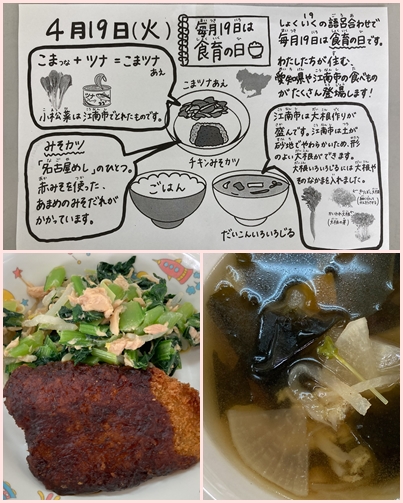 4月19日(火)
毎月19日は
食育の日
しょくいくの語呂合わせで
毎月19日は食育の日です。
わたしたちが住む、
愛知県や江南市の食べもの
がたくさん登場します!
こまつな + ツナ = こまツナ
あえ
ツナ
小松菜は江南市でとれたものです。
こまツナあえ
みそカツ
「名古屋めし」のひとつ。
赤みそを使った、
あまめのみそだれが
かかっています。
チキンみそカツ
ごはん
だいこんいろいろじる
江南市は大根作りが
盛んです。江南市は土が
砂地でやわらかいため、形
のよい大根ができます。
大根いろいろじるには大根や
きのなかまを入れました。